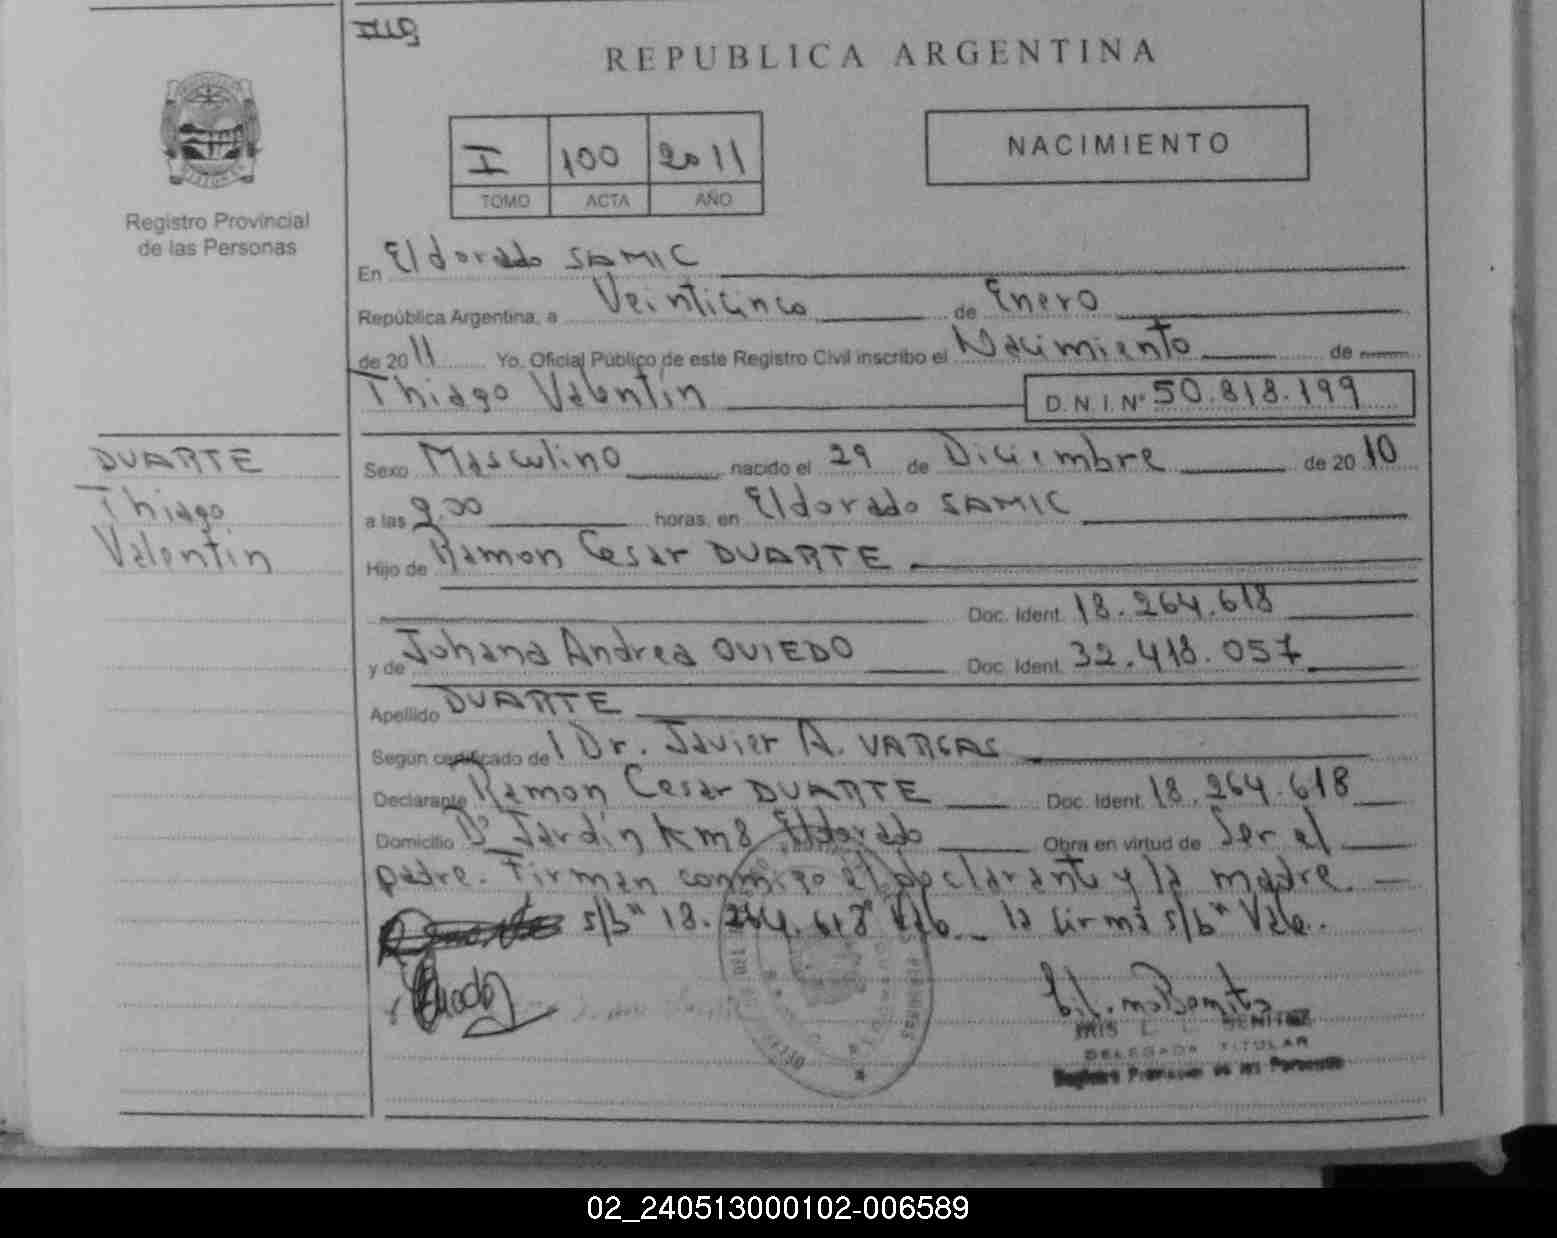 REPUBLICA ARGENTINA
I 100 2011
TOMO ACTA AÑO
NACIMIENTO
Registro Provincial
de las Personas
En Eldorado SAMIC
República Argentina, a Veinticinco de Enero
de 2011 Yo, Oficial Público de este Registro Civil inscribo el Nacimiento de
Thiago Valentín D.N.I. N° 50.818.199
DUARTE
Thiago
Valentín
Sexo Masculino nacido el 29 de Diciembre de 2010
a las 9,00 horas, en Eldorado SAMIC
Hijo de Ramon Cesar DUARTE
Doc. Ident. 18.264.618
y de Johana Andrea OVIEDO Doc. Ident. 32.418.057
Apellido DUARTE
Según certificado del Dr. Javier A. VARGAS
Declarante Ramon Cesar DUARTE Doc. Ident. 18.264.618
Domicilio B° Jardín Km 8 Eldorado Obra en virtud de Ser el
padre. Firman conmigo el declarante y la madre.
s/b" 18.264.618 Vale la firma s/b" Vale.
IRIS L. L. BENITEZ
DELEGADA TITULAR
Registro Provincial de las Personas
02_240513000102-006589